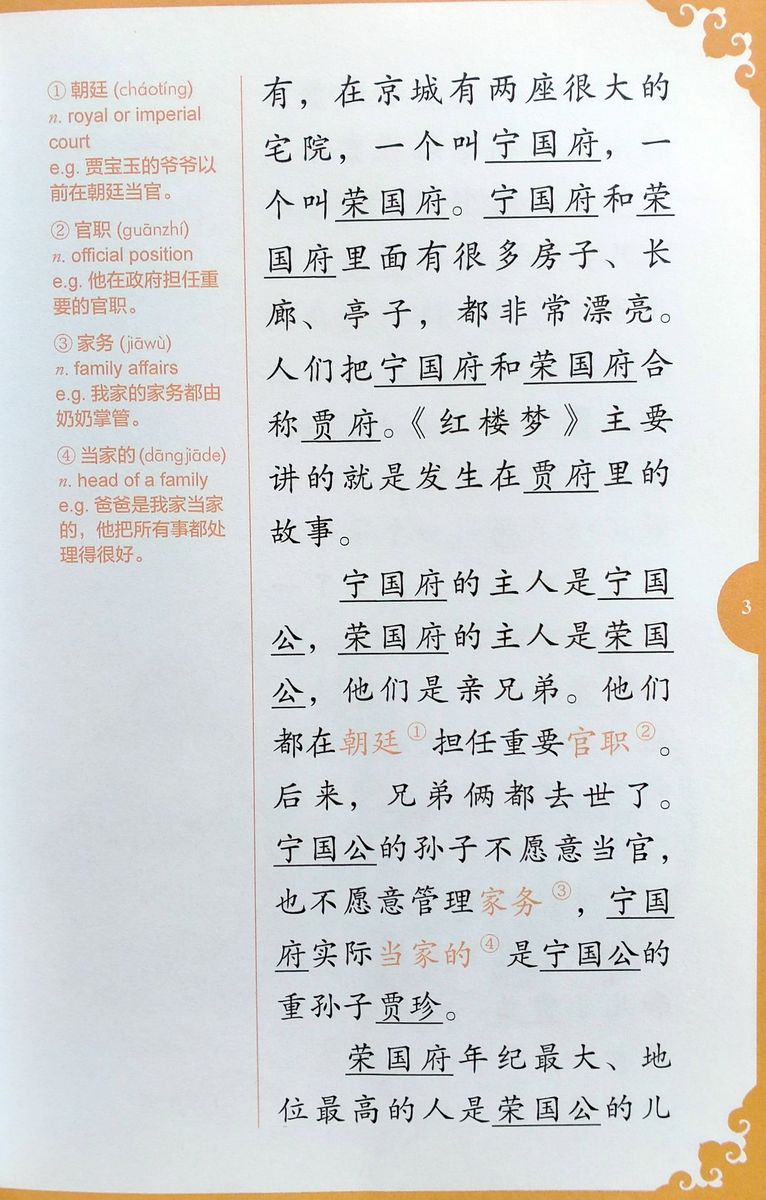 ① 朝廷 (cháotíng)
n. royal or imperial
court
e.g. 贾宝玉的爷爷以
前在朝廷当官。
② 官职 (guānzhí)
n. official position
e.g. 他在政府担任重
要的官职。
③ 家务 (jiāwù)
n. family affairs
e.g. 我家的家务都由
奶奶掌管。
④ 当家的 (dāngjiāde)
n. head of a family
e.g. 爸爸是我家当家
的，他把所有事都处
理得很好。
有，在京城有两座很大的
宅院，一个叫宁国府，一
个叫荣国府。宁国府和荣
国府里面有很多房子、长
廊、亭子，都非常漂亮。
人们把宁国府和荣国府合
称贾府。《红楼梦》主要
讲的就是发生在贾府里的
故事。
宁国府的主人是宁国
公，荣国府的主人是荣国
公，他们是亲兄弟。他们
都在朝廷①担任重要官职②。
后来，兄弟俩都去世了。
宁国公的孙子不愿意当官，
也不愿意管理家务③，宁国
府实际当家的④是宁国公的
重孙子贾珍。
荣国府年纪最大、地
位最高的人是荣国公的儿
3